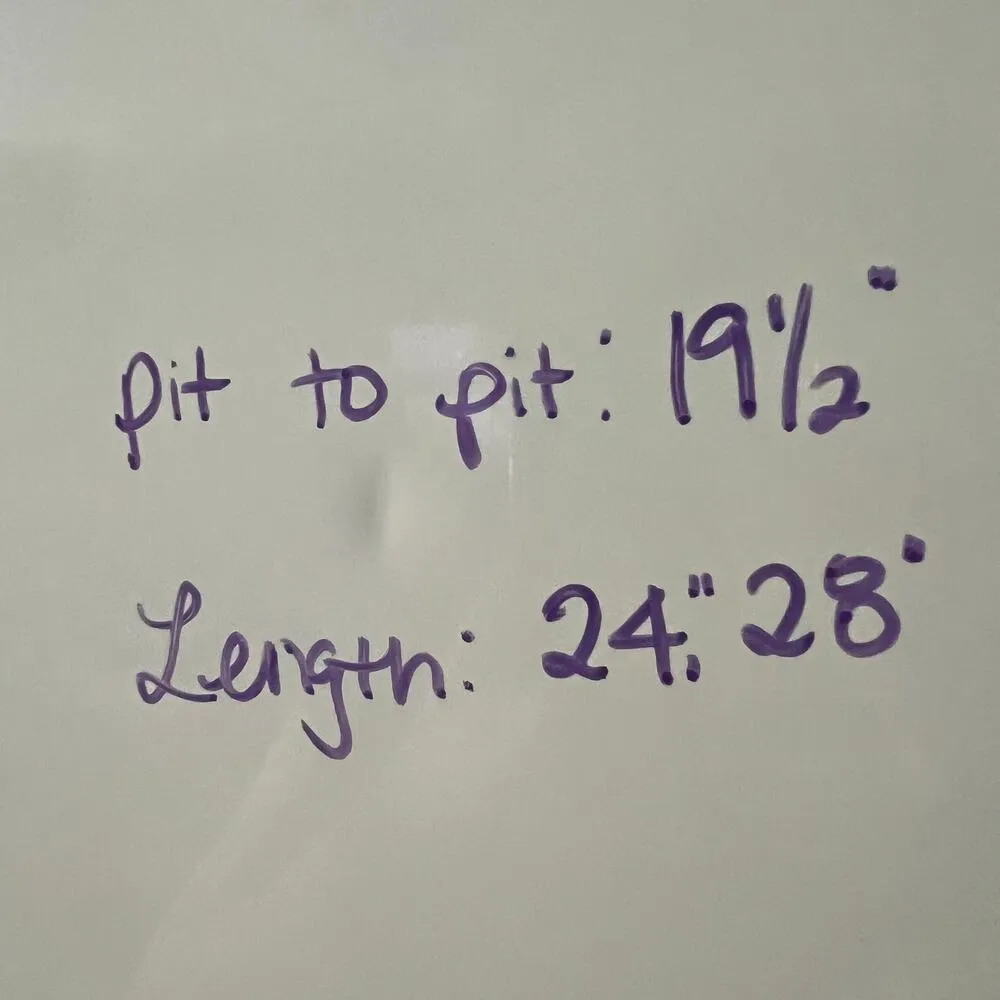 pit to pit: 19 1/2"
Length: 24"; 28"